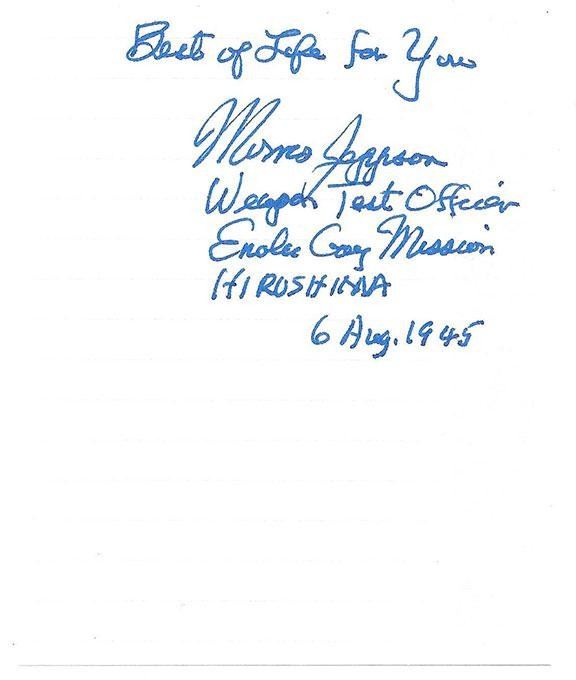 Best of Life for You
Morris Jeppson
Weapon Test Officer
Enola Gay Mission
HIROSHIMA
6 Aug. 1945